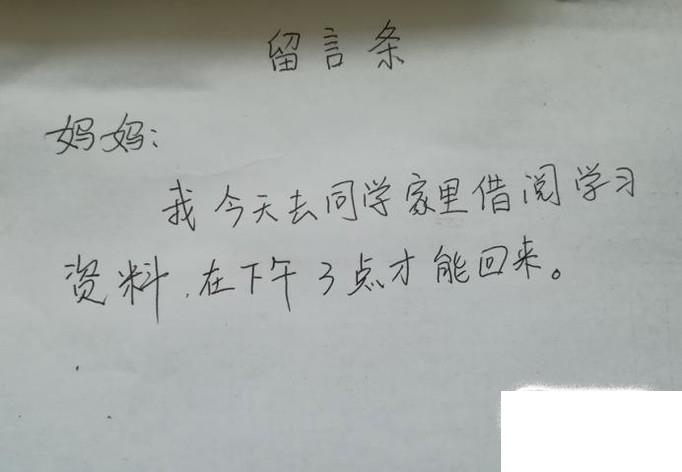 留言条
妈妈：
我今天去同学家里借阅学习
资料，在下午3点才能回来。